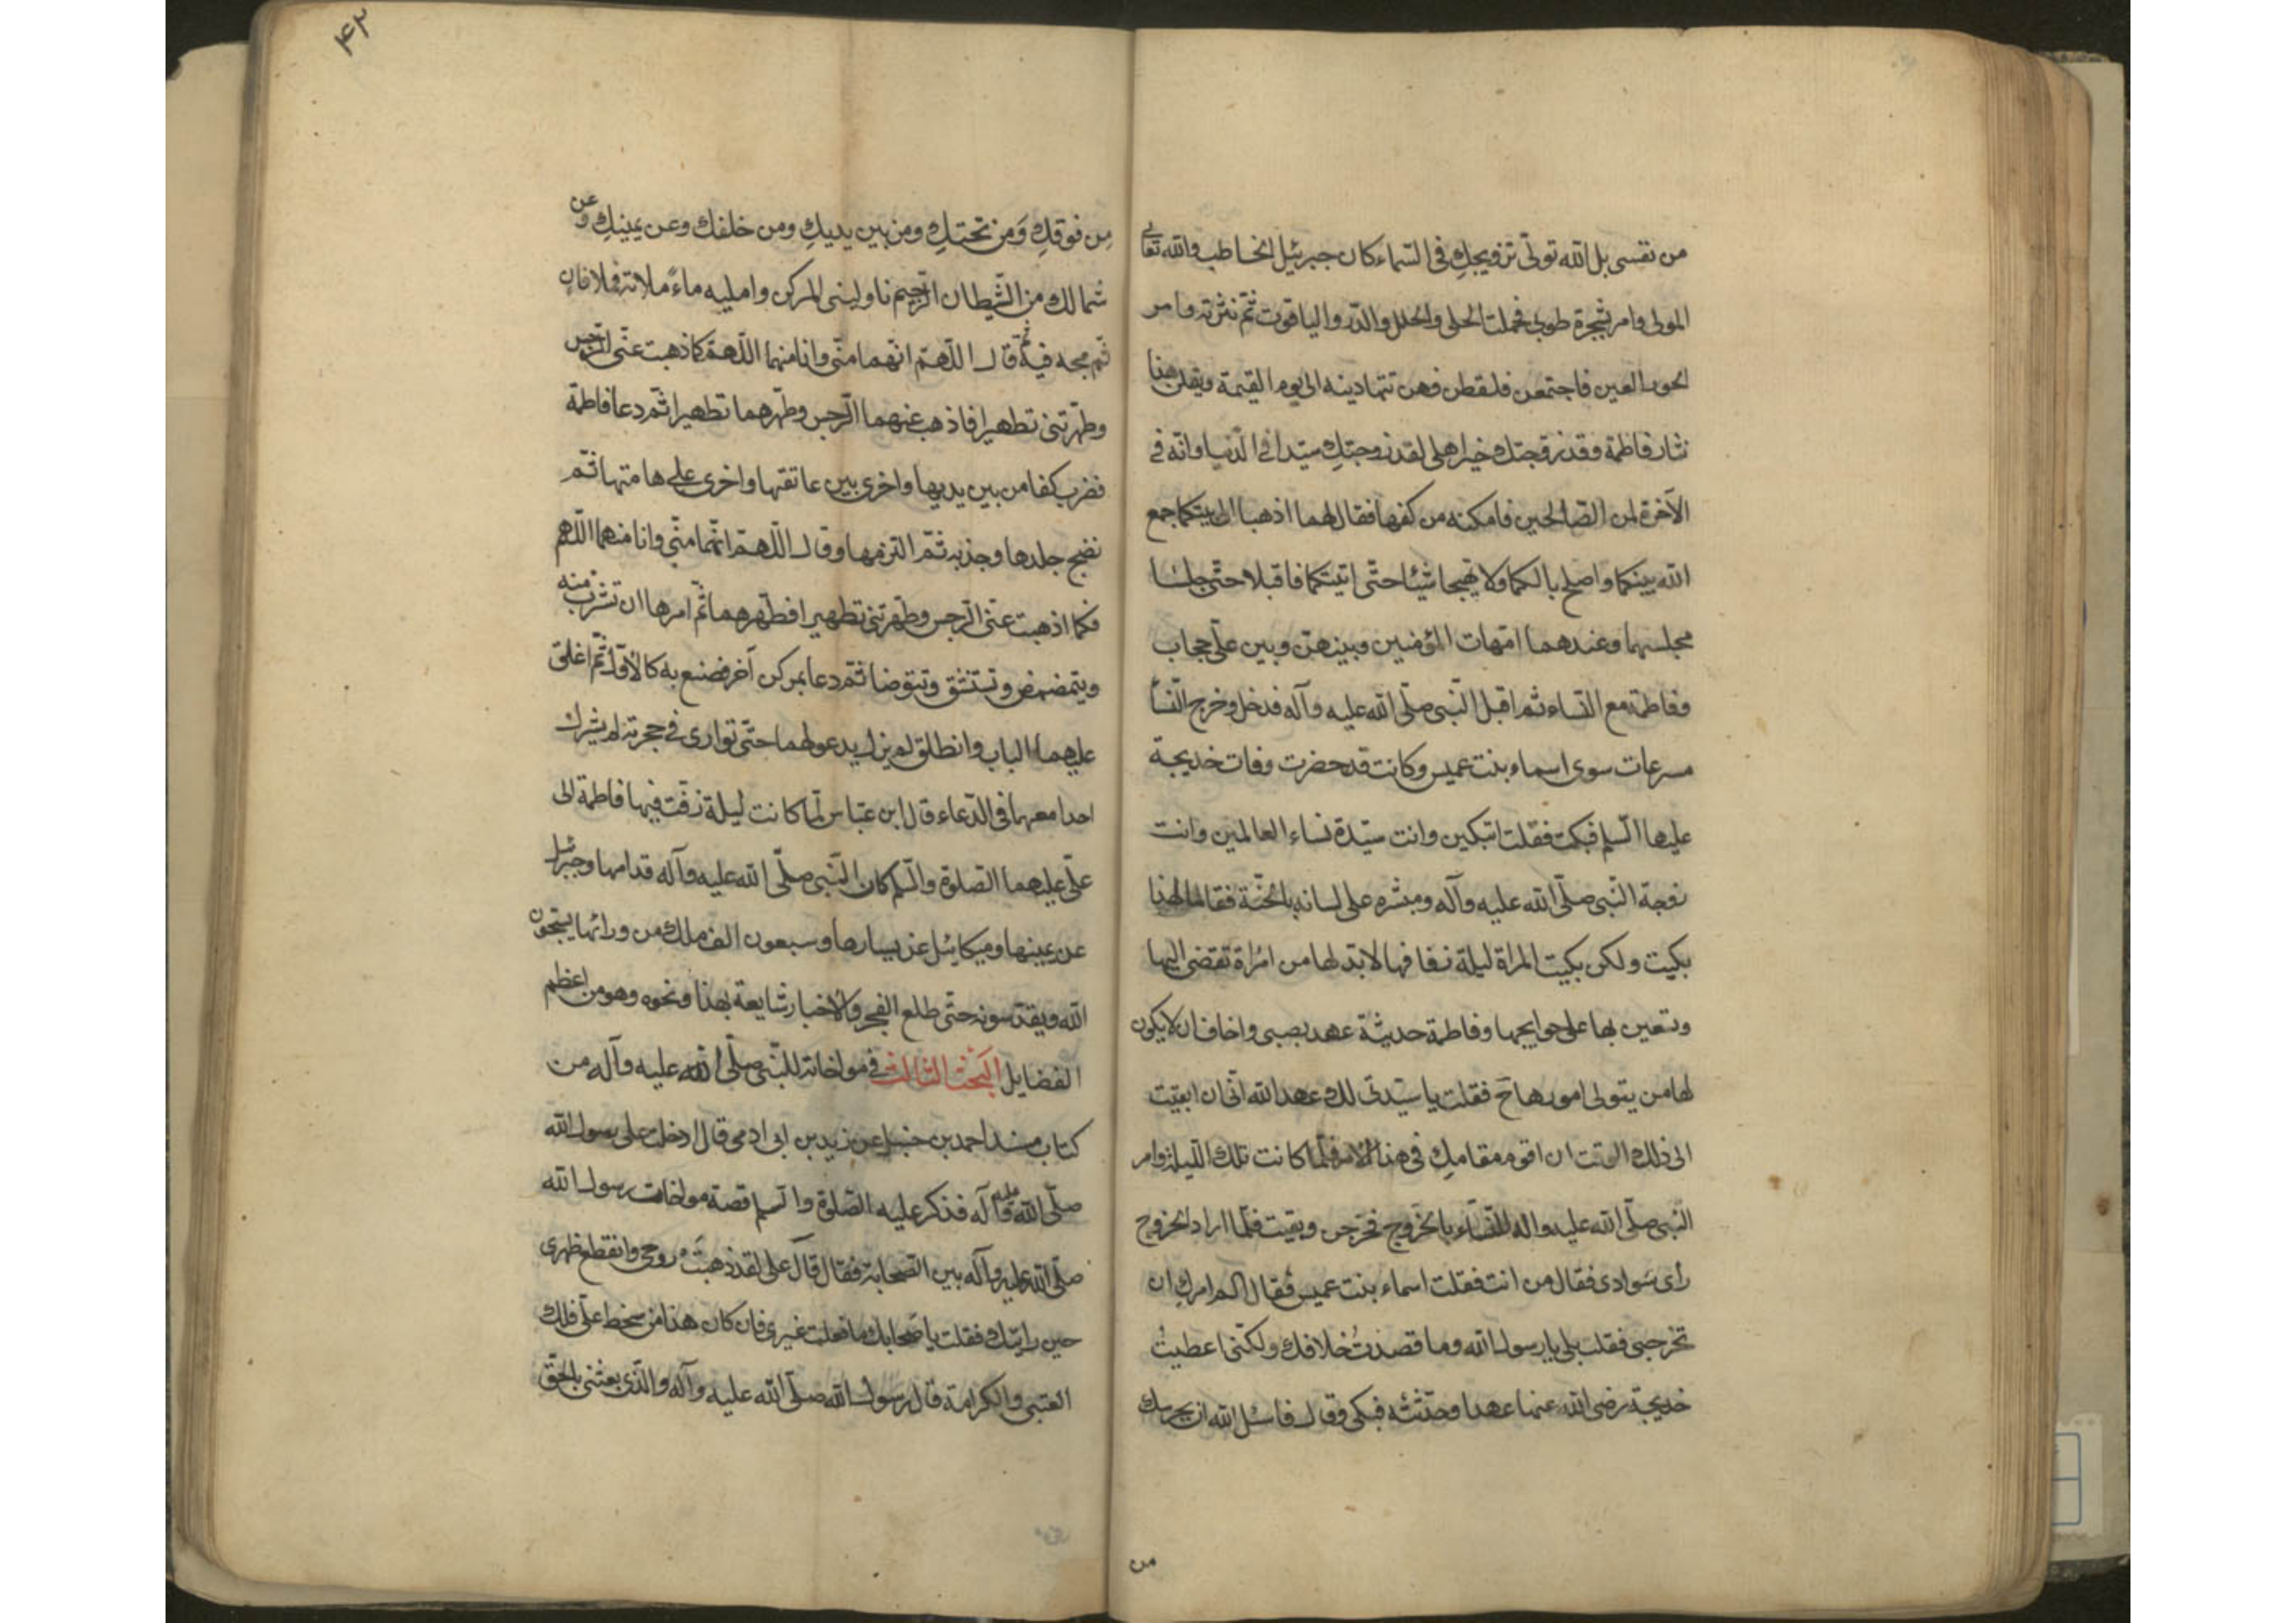 من نفسى بل الله تولّى تزويجكِ فى السّماء كان جبرئيل الخاطب والله تعالى
المولى وامر شجرة طوبى فحملت الحلى والحلل والدّر والياقوت ثمّ نثرته وامر
الحور العين فاجتمعن فلقطن فهن تتهادينه الى يوم القيمة ويقلن هذا
نثار فاطمة وقد زوّجتك خير اهلى لقد زوجتكِ سيّدا فى الدّنيا وانّه فى
الآخرة لمن الصّالحين فامكنه من كفها فقال لهما اذهبا الى بيتكما جمع
الله بينكما واصلح بالكما ولا تهيجا شيئا حتّى اتيتكما فاقبلا حتّى جلسا
مجلسهما وعندهما امّهات المؤمنين وبينهنّ وبين علىّ حجاب
وفاطمة مع النّساء ثم اقبل النّبى صلّى الله عليه وآله فدخل وخرج النّساء
مسرعات سوى اسماء بنت عميس وكانت قد حضرت وفات خديجة
عليها السّلم فبكت فقلت اتبكين وانت سيّدة نساء العالمين وانت
زوجة النّبى صلّى الله عليه وآله ومبشّره على لسانه بالجنّة فقالت ما لهذا
بكيت ولكن بكيت المراة ليلة زفافها لابدّ لها من امراة تفضى اليها
وتستعين بها على حوايجها وفاطمة حديثة عهد بصبى واخاف ان لا يكون
لها من يتولى امورها ح فقلت يا سيّدتى لك عهد الله انّى ان ابقيت
الى ذلك الوقت ان اقوم مقامكِ فى هذا الامر فلمّا كانت تلك اللّيلة وامر
النّبى صلّى الله عليه واله النّساء بالخروج فخرجن وبقيت فلمّا اراد الخروج
راى سوادى فقال من انت فقلت اسماء بنت عميس فقال الم امركِ ان
تخرجى فقلت بلى يا رسول الله وما قصدتُ خلافك ولكنّى اعطيتُ
خديجة رضى الله عنها عهدا وحدّثته فبكى وقال فاسئل الله ان يحرسك
من
۴۲
مِن فوقكِ وَمن تحتكِ ومن بين يديكِ ومن خلفك وعن يمينكِ وعن
شمالك من الشّيطان الرّجيم ناولينى المركن وامليه ماءً فملاته فلا فاه
ثمّ مجه فيه ثمّ قال اللّهمّ انّهما منّى وانا منهما اللّهمّ كما اذهبت عنّى الرّجس
وطهّرتنى تطهيرا فاذهب عنهما الرّجس وطهّرهما تطهيرا ثمّ دعا فاطمة
فضرب كفا من بين يديها واخرى بين عاتقها واخرى على هامتها ثمّ
نضح جلدها وجذبه ثمّ التزمها وقال اللّهمّ انّهما منّى وانا منهما اللّهم
فكما اذهبت عنّى الرّجس وطهّرتنى تطهيرا فطهّرهما ثمّ امرها ان تشرب منه
ويتمضمض وتستنشق وتتوضا ثمّ دعا بمركن آخر فصنع به كالاوّل ثمّ اغلق
عليهما الباب وانطلق لم يزل يدعو لهما حتّى توارى فى حجرته لم يشرك
احدا معهما فى الدّعاء قال ابن عبّاس لمّا كانت ليلة زفّت فيها فاطمة الى
علىّ عليهما الصّلوة والسّلم كان النّبى صلّى الله عليه وآله قدامها وجبرئيل
عن يمينها وميكائيل عن يسارها وسبعون الف ملك من ورائها يسبّحون
الله ويقدّسونه حتّى طلع الفجر والاخبار شايعة بهذا ونحوه وهو من اعظم
الفضايل البَحث الثالث فى مواخاته للنّبى صلّى الله عليه وآله من
كتاب مسند احمد بن حنبل عن زيد بن ابى ادمى قال ادخلت على رسول الله
صلّى الله عليه وآله فذكر عليه الصّلوة والسّلم قصة مواخات رسول الله
صلّى الله عليه وآله بين الصّحابة فقال قال على لقد ذهبَتْ روحى وانقطع ظهرى
حين رايتك فقلت يا صحابك ما فعلت غيرى فان كان هذا من سخط علىّ فلك
العتبى والكرامة قال رسول الله صلّى الله عليه وآله والّذى بعثنى بالحقّ